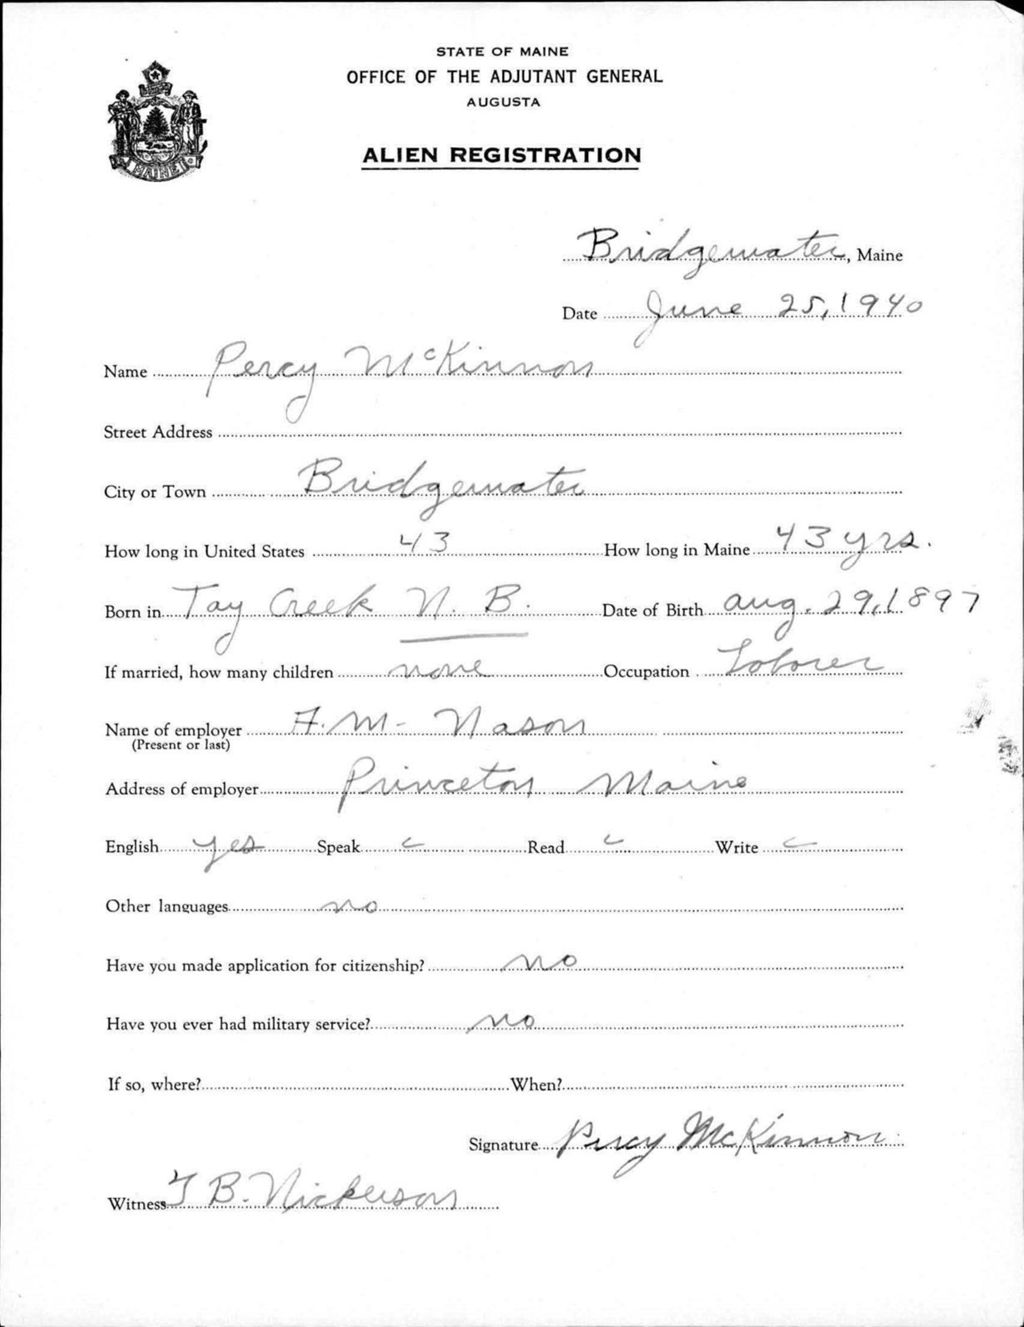 STATE OF MAINE
OFFICE OF THE ADJUTANT GENERAL
AUGUSTA
ALIEN REGISTRATION
MAINE
Bridgewater, Maine
Date June 25, 1940
Name Percy McKinnon
Street Address
City or Town Bridgewater
How long in United States 43 How long in Maine 43 yrs.
Born in Tay Creek N. B. Date of Birth Aug. 29, 1897
If married, how many children none Occupation Laborer
Name of employer F. M. Nason
(Present or last)
Address of employer Princeton Maine
English yes Speak Read Write
Other languages no
Have you made application for citizenship? no
Have you ever had military service? no
If so, where? When?
Signature Percy McKinnon
Witness B. Nickerson